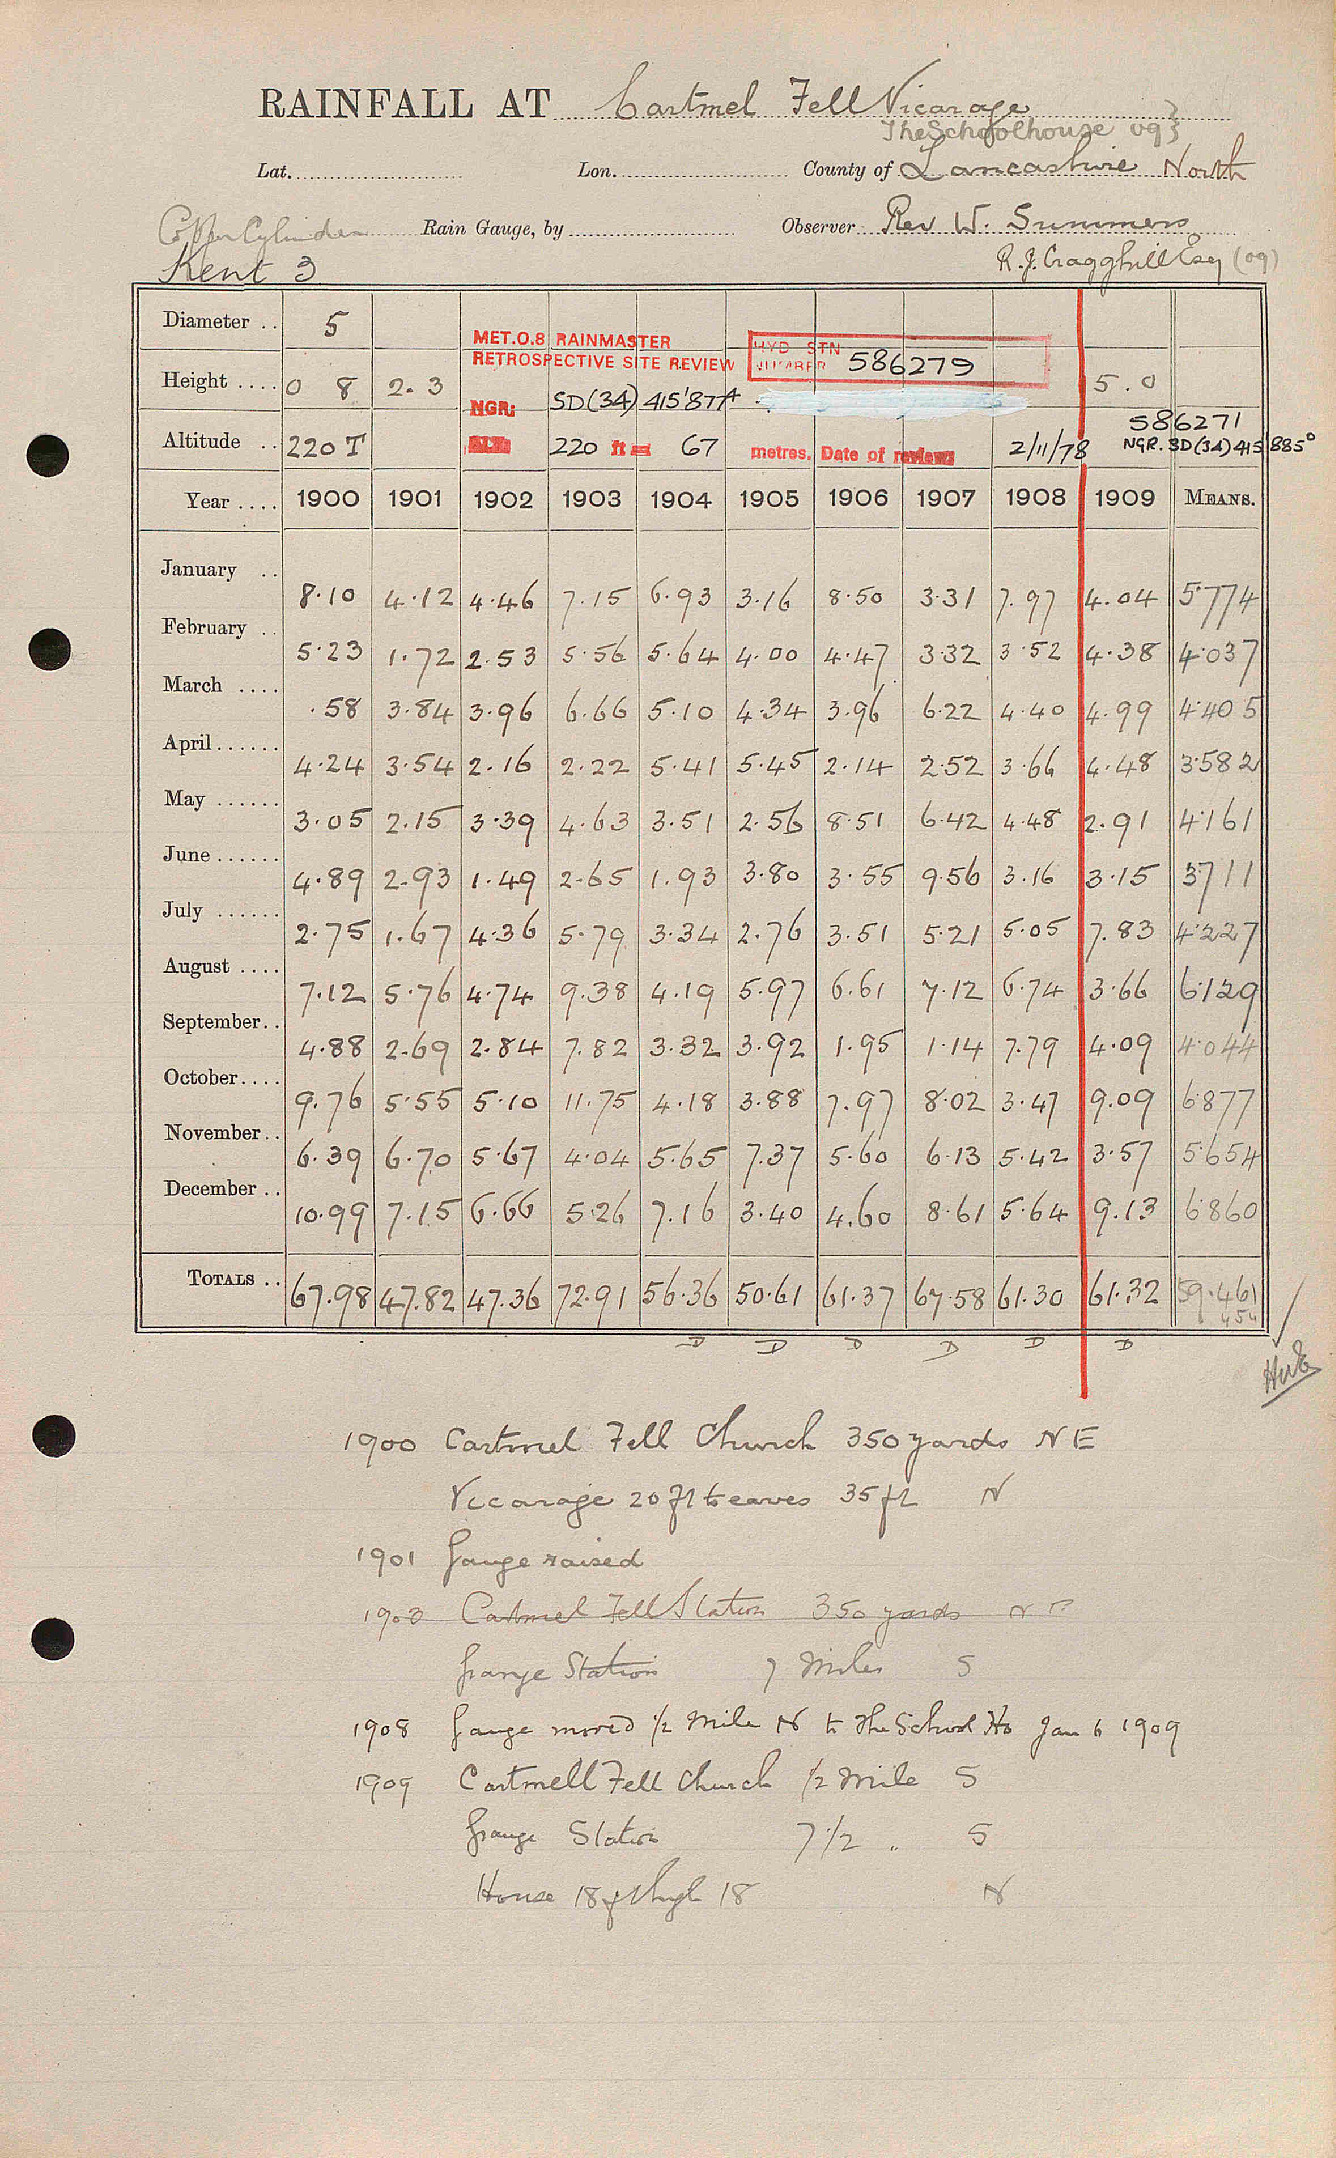 RAINFALL AT Cartmel Fell Vicarage
The Schoolhouse 09}
Lat. Lon. County of Lancashire North
Copper Cylinder Rain Gauge, by Observer Rev W. Summers
Kent 3 R. J. Cragghill Esq (09)
Diameter .. 5
MET.O.8 RAINMASTER
RETROSPECTIVE SITE REVIEW HYD STN NUMBER 586279
Height .... 0 8 2.3 5.0
NGR: SD(34) 415'877A
586271
Altitude .. 220 T 220 ft = 67 metres. Date of review 2/11/78 NGR. SD(34)415 885°
Year .... 1900 1901 1902 1903 1904 1905 1906 1907 1908 1909 MEANS.
January .. 8.10 4.12 4.46 7.15 6.93 3.16 8.50 3.31 7.97 4.04 5.774
February .. 5.23 1.72 2.53 5.56 5.64 4.00 4.47 3.32 3.52 4.38 4.037
March .... .58 3.84 3.96 6.66 5.10 4.34 3.96 6.22 4.40 4.99 4.405
April...... 4.24 3.54 2.16 2.22 5.41 5.45 2.14 2.52 3.66 4.48 3.582
May ...... 3.05 2.15 3.39 4.63 3.51 2.56 8.51 6.42 4.48 2.91 4.161
June...... 4.89 2.93 1.49 2.65 1.93 3.80 3.55 9.56 3.16 3.15 3.711
July ...... 2.75 1.67 4.36 5.79 3.34 2.76 3.51 5.21 5.05 7.83 4.227
August .... 7.12 5.76 4.74 9.38 4.19 5.97 6.61 7.12 6.74 3.66 6.129
September.. 4.88 2.69 2.84 7.82 3.32 3.92 1.95 1.14 7.79 4.09 4.044
October.... 9.76 5.55 5.10 11.75 4.18 3.88 7.97 8.02 3.47 9.09 6.877
November.. 6.39 6.70 5.67 4.04 5.65 7.37 5.60 6.13 5.42 3.57 5.654
December .. 10.99 7.15 6.66 5.26 7.16 3.40 4.60 8.61 5.64 9.13 6.860
TOTALS .. 67.98 47.82 47.36 72.91 56.36 50.61 61.37 67.58 61.30 61.32 59.461
454
D D D D D D
1900 Cartmel Fell Church 350 yards NE
Vicarage 20 ft to eaves 35 ft N
1901 Gauge raised
1908 Cartmel Fell Station 350 yards NE
Grange Station 7 Miles S
1908 Gauge moved 1/2 mile N to The School Ho Jan 6 1909
1909 Cartmell Fell Church 1/2 mile S
Grange Station 7 1/2 " S
House 18 ft high 18 N